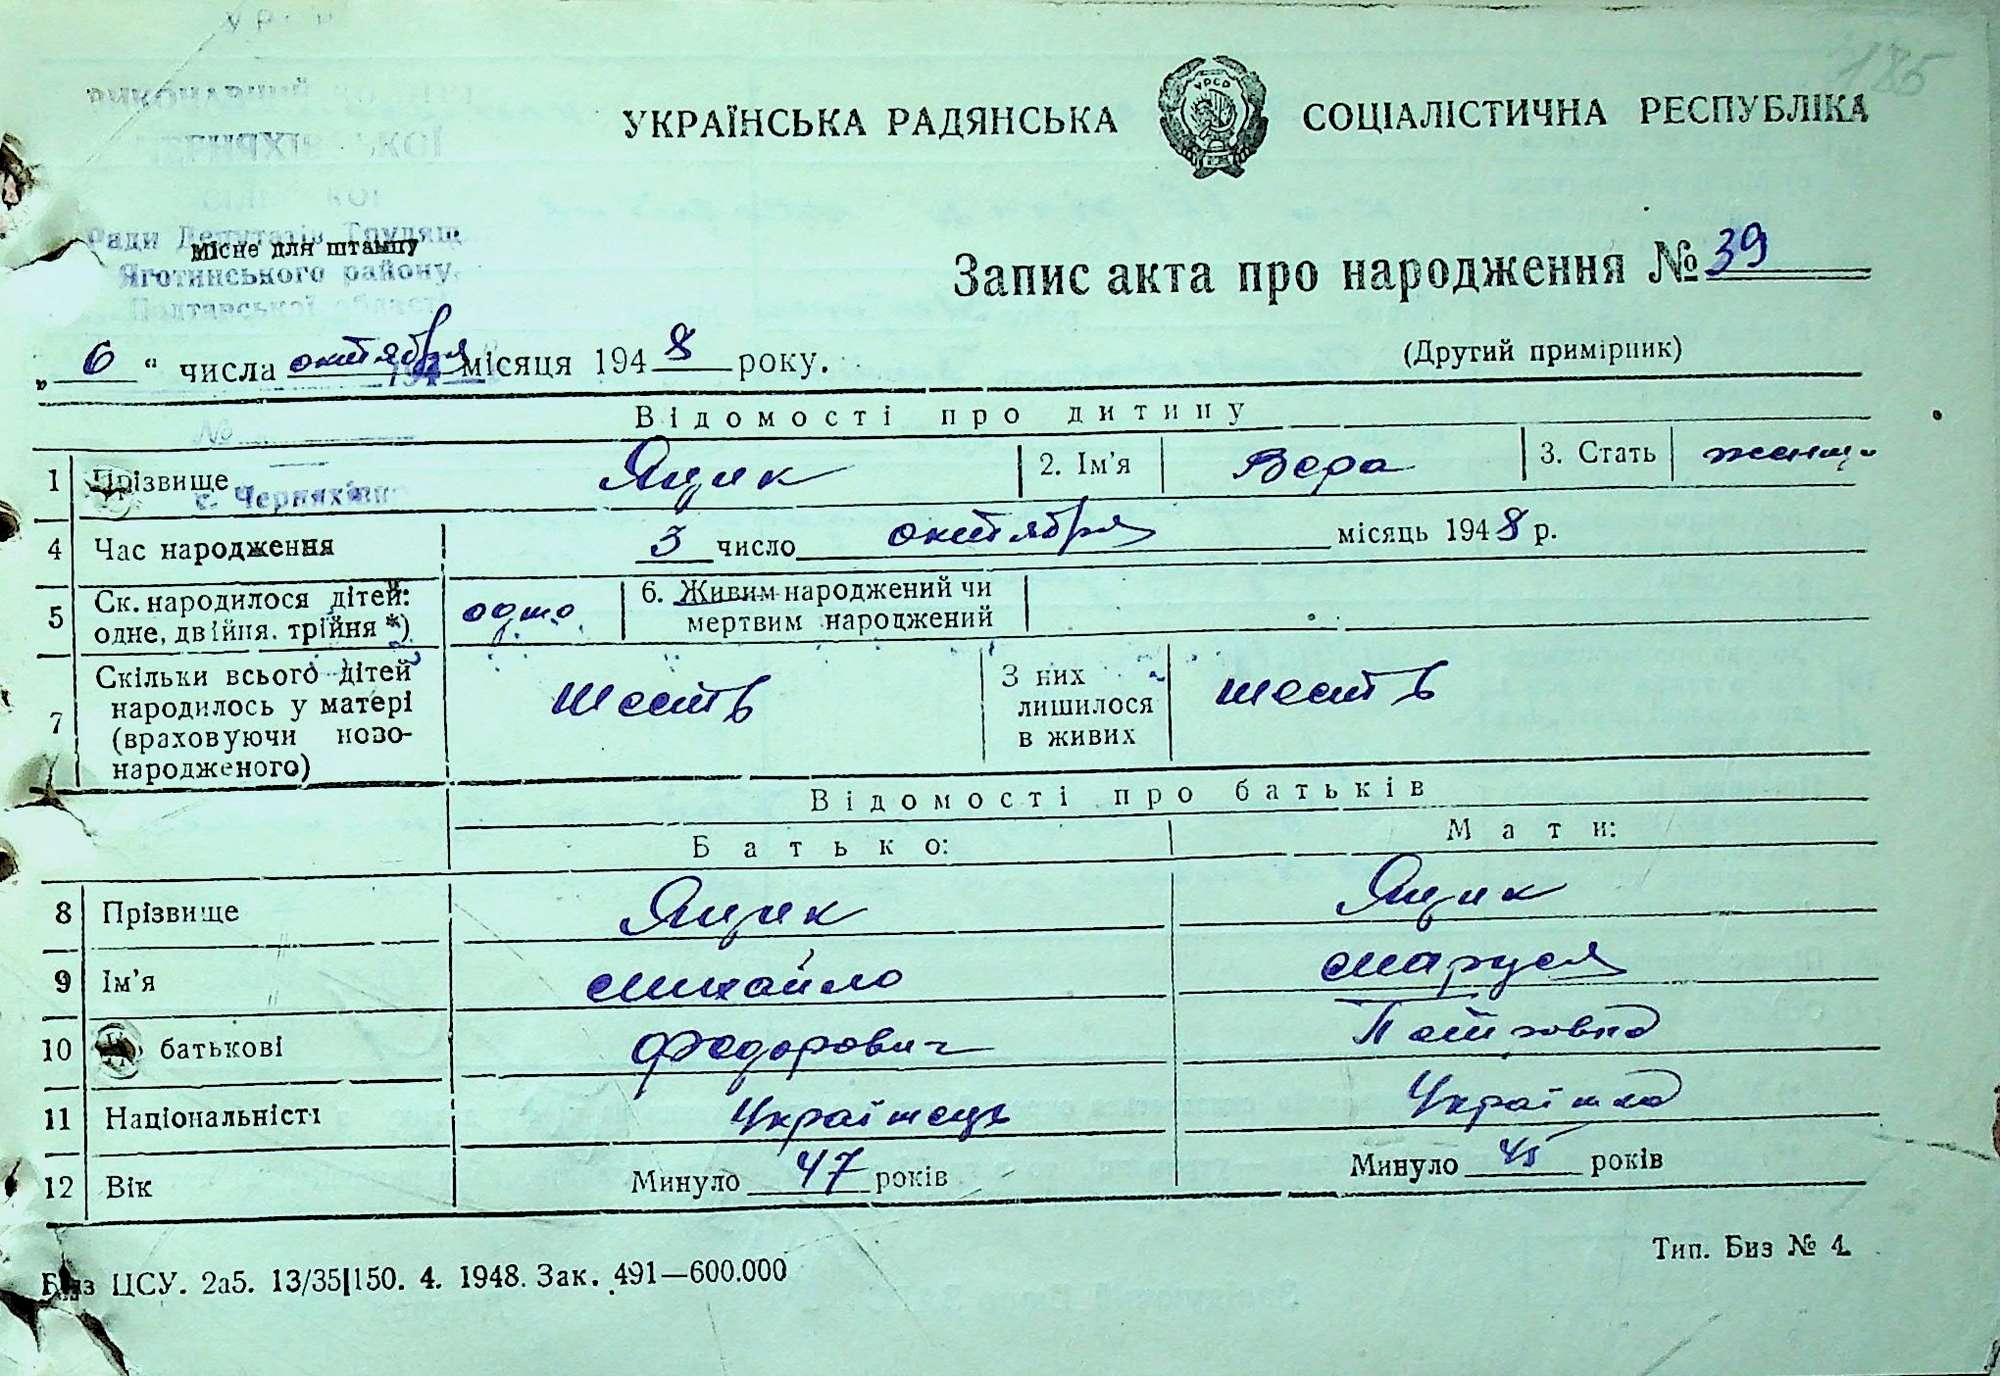 185
УКРАЇНСЬКА РАДЯНСЬКА СОЦІАЛІСТИЧНА РЕСПУБЛІКА
УРСР
Ради Депутатів Трудящ
Місце для штампу
Яготинського району,
Полтавської област
Запис акта про народження № 39
(Другий примірник)
„ 6 “ числа октября місяця 194 8 року.
Відомості про дитину
№
1 Прізвище Яцик 2. Ім'я Вера 3. Стать женщи
с. Черняхівк
4 Час народження 3 число октября місяць 194 8 р.
5 Ск. народилося дітей: одно 6. Живим народжений чи
одне, двійня, трійня *) мертвим народжений
7 Скільки всього дітей шесть З них шесть
народилось у матері лишилося
(враховуючи ново- в живих
народженого)
Відомості про батьків
Батько: Мати:
8 Прізвище Яцик Яцик
9 Ім'я Михайло Маруся
10 батькові Федорович
11 Національністі Українець Українка
12 Вік Минуло 47 років Минуло 45 років
Биз ЦСУ. 2а5. 13/35|150. 4. 1948. Зак. 491—600.000
Тип. Биз № 4